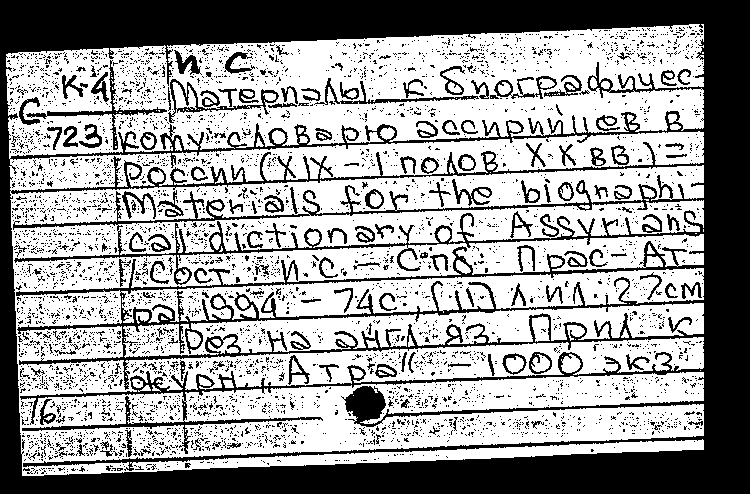 И. С
К-4 Материалы к биографичес-
С
723 кому словарю ассирийцев в
России (XIX - I полов. XX вв.) =
Materials for the biographi-
cal dictionary of Assyrians
/ Сост. И.С. - Спб. Прас- Ат-
ра, 1994. - 74с., [11] л. ил.; 27см
Рез. на англ. яз. Прил. к
журн. „Атра". - 1000 экз.
16